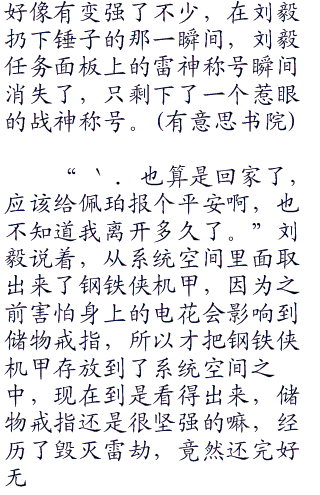 好像有变强了不少，在刘毅
扔下锤子的那一瞬间，刘毅
任务面板上的雷神称号瞬间
消失了，只剩下了一个惹眼
的战神称号。(有意思书院)
“ 丶．也算是回家了，
应该给佩珀报个平安啊，也
不知道我离开多久了。”刘
毅说着，从系统空间里面取
出来了钢铁侠机甲，因为之
前害怕身上的电花会影响到
储物戒指，所以才把钢铁侠
机甲存放到了系统空间之
中，现在到是看得出来，储
物戒指还是很坚强的嘛，经
历了毁灭雷劫，竟然还完好
无